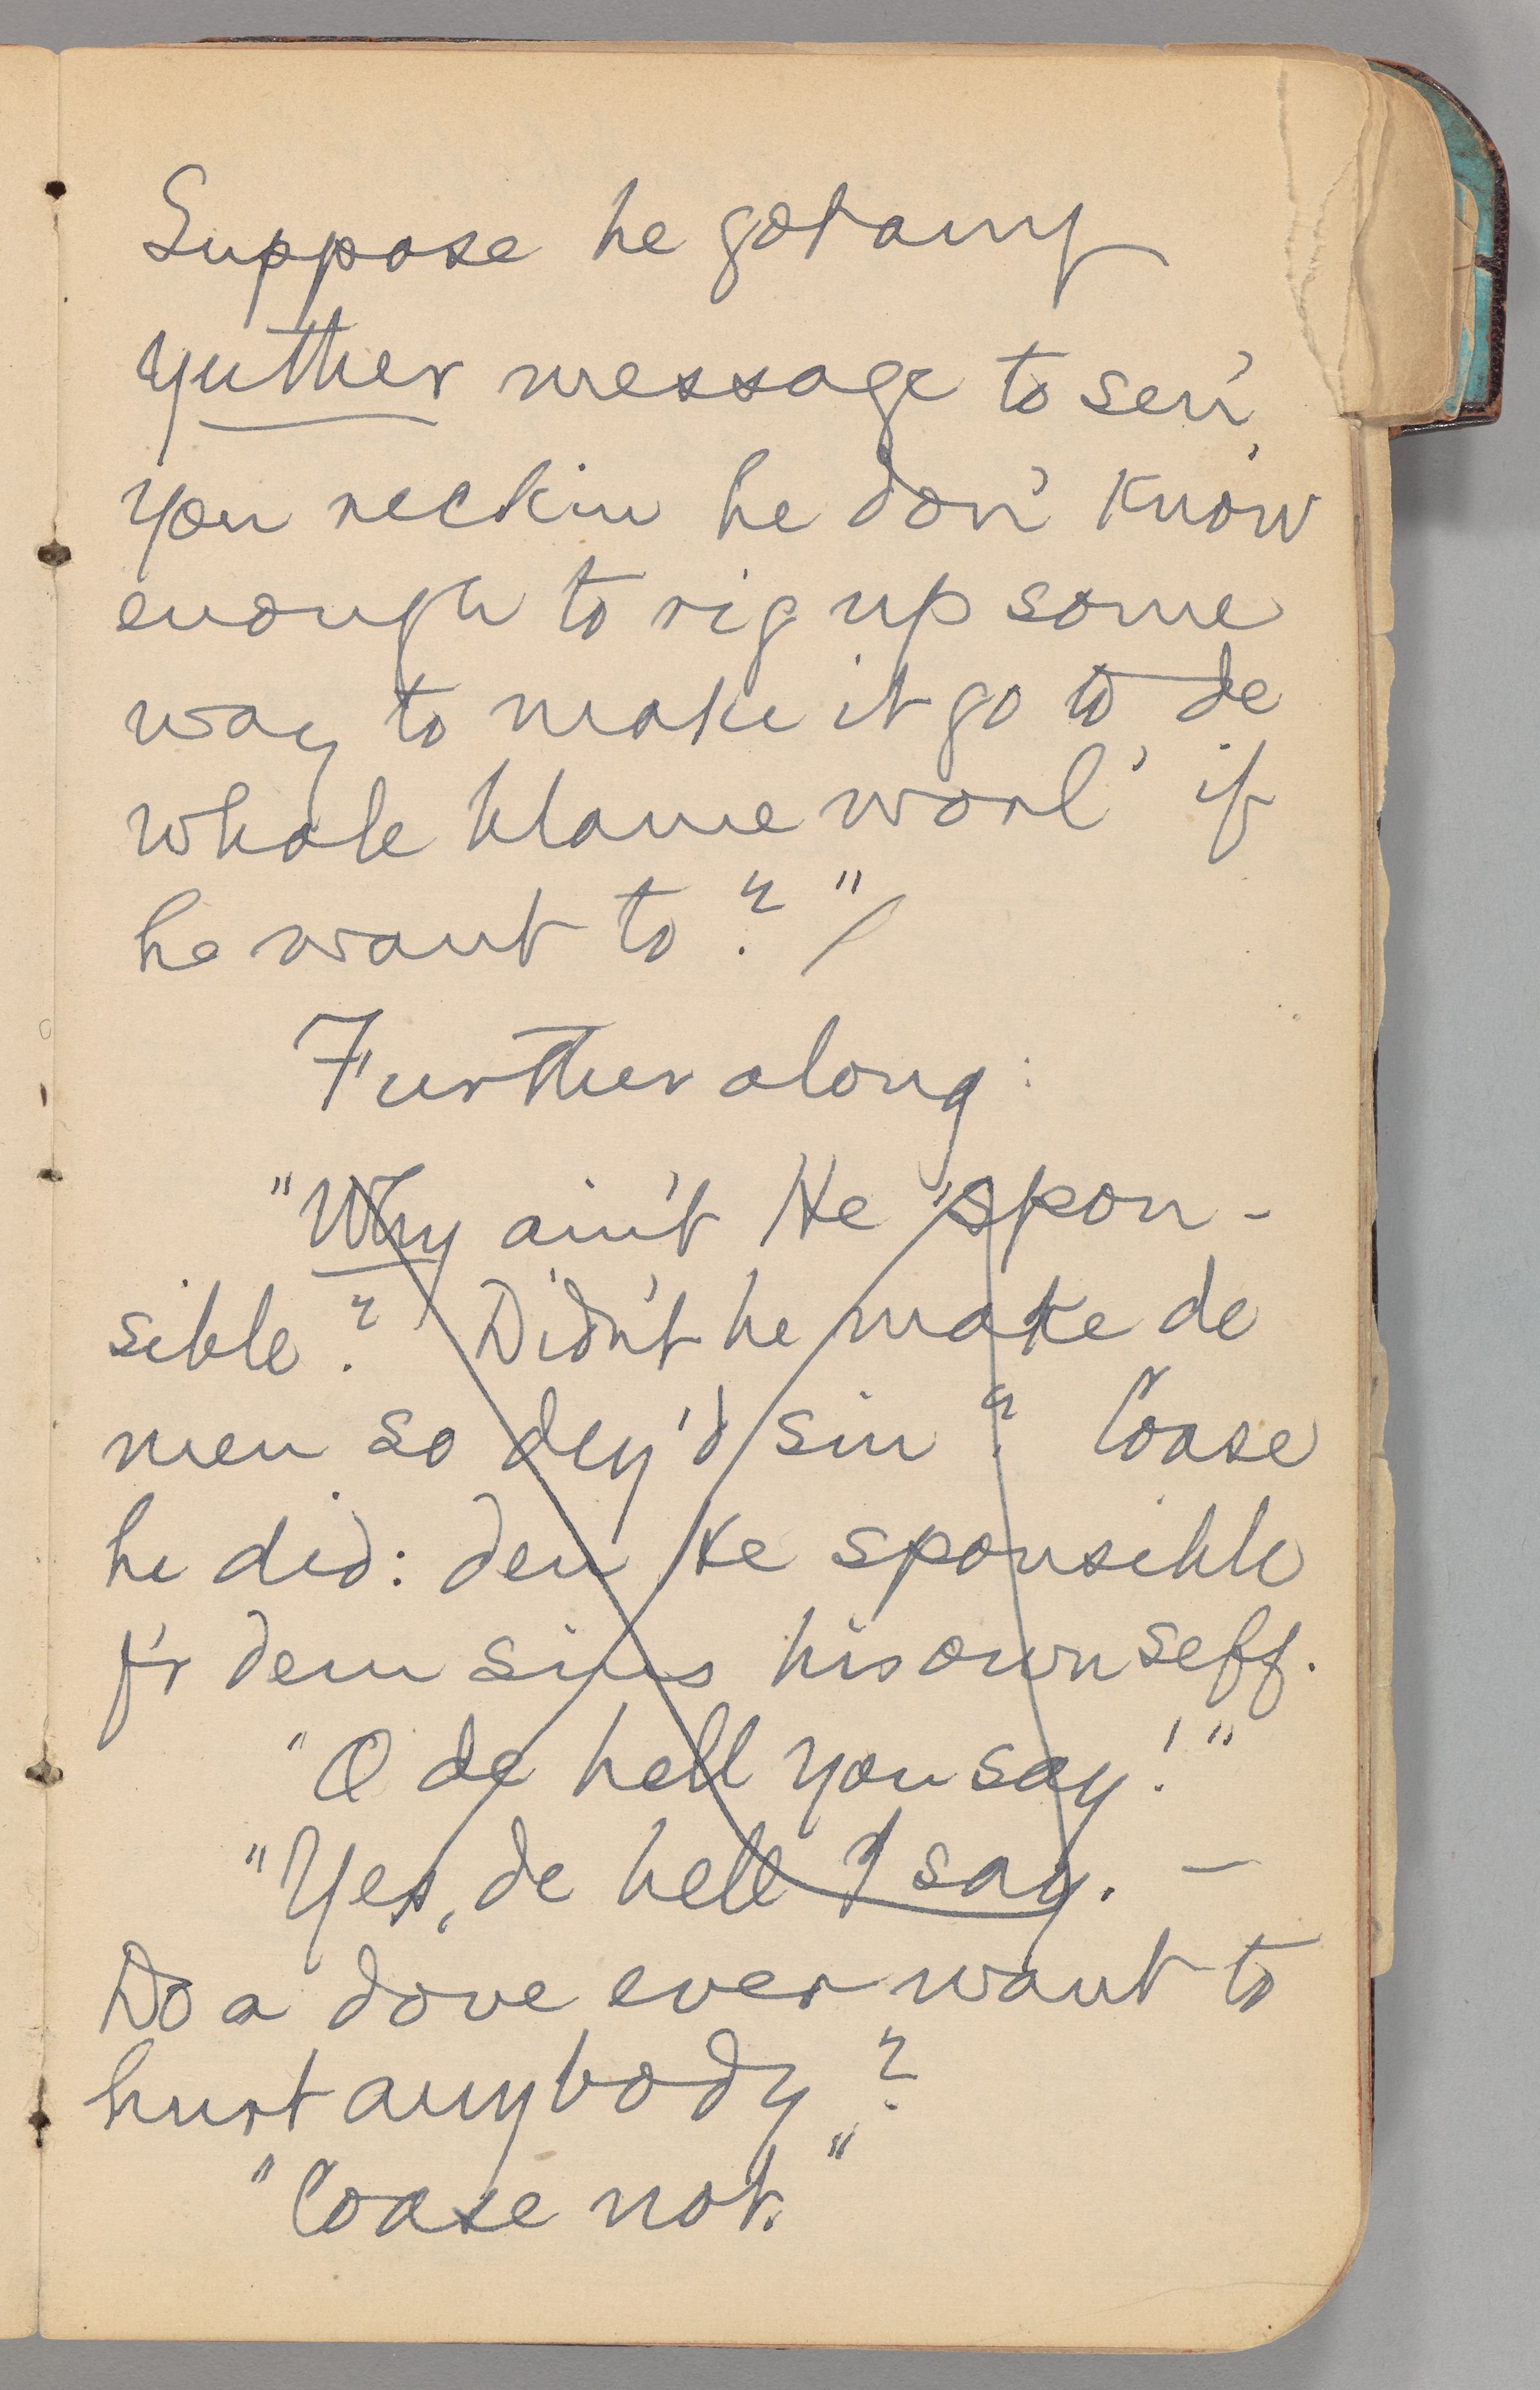 Suppose he got any
yuther message to sen',
you reckin he don' know
enough to rig up some
way to make it go to de
whole blame worl' if
he want to?"
Further along:
"Why ain't He 'spon-
sible? Didn't he make de
men so dey'd sin? Coase
he did: den He sponsible
f'r dem sins his own seff.
"O de hell you say!"
"Yes, de hell I say. —
Do a dove ever want to
hurt anybody?
"Coase not."